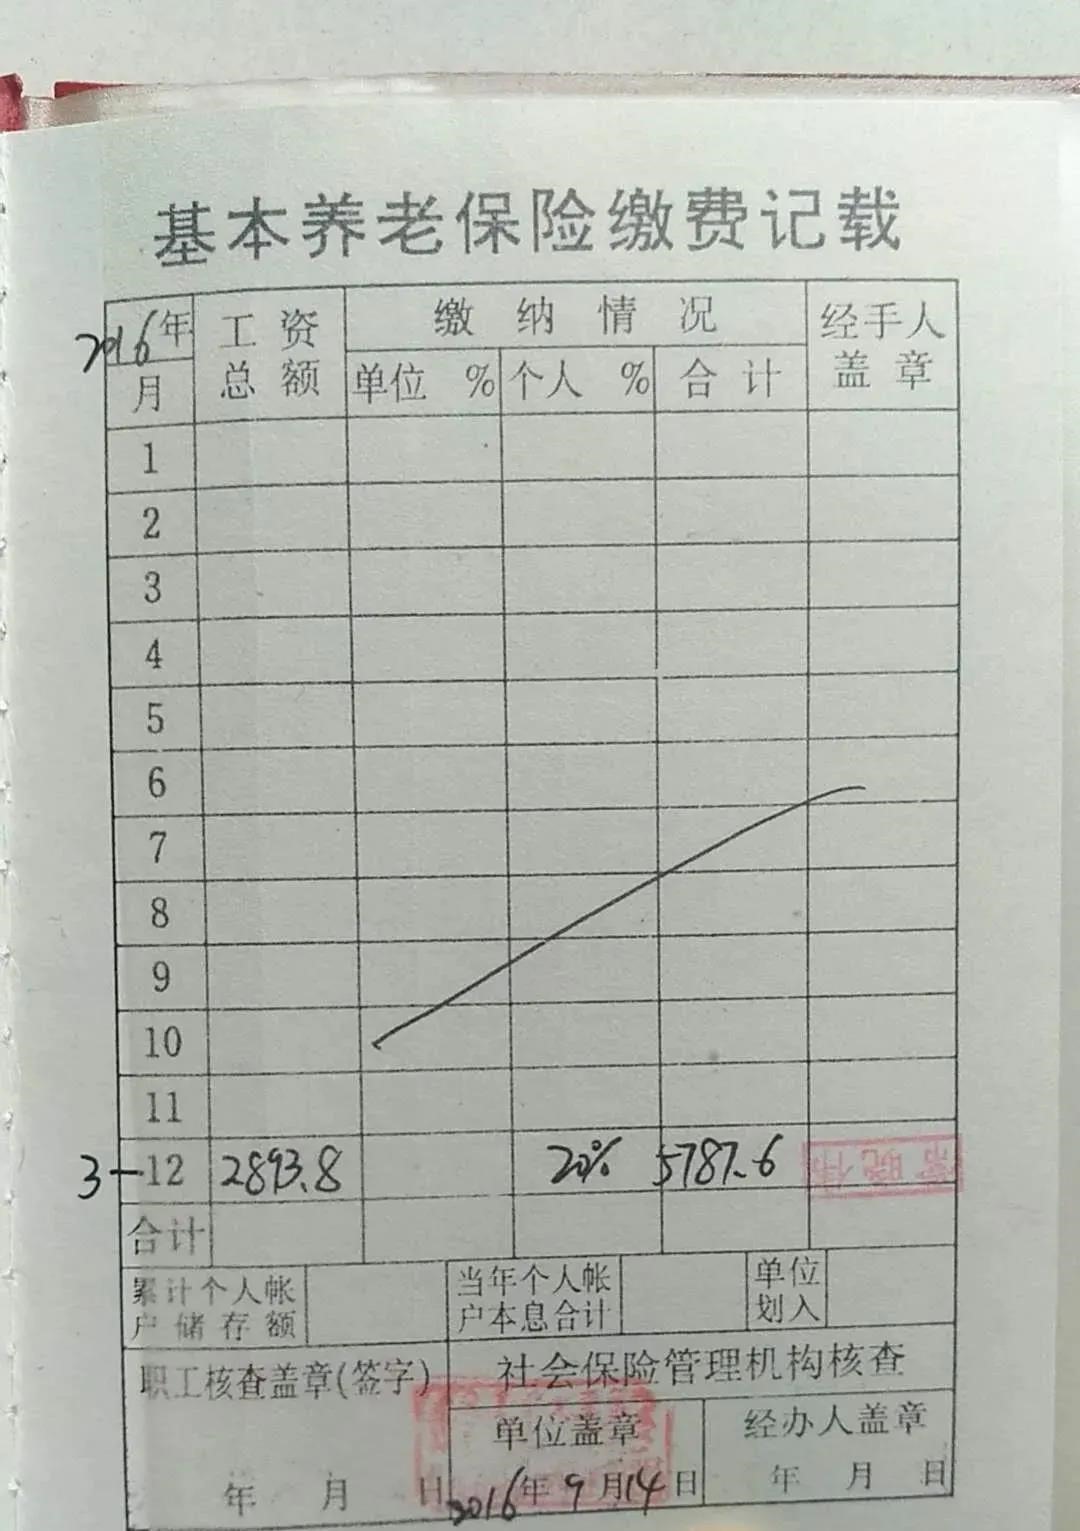 基本养老保险缴费记载
2016年 工资总额 缴纳情况 经手人盖章
月 单位 % 个人 % 合计
1
2
3
4
5
6
7
8
9
10
11
3-12 2893.8 20% 5787.6
合计
累计个人帐户储存额 当年个人帐户本息合计 单位划入
职工核查盖章(签字) 社会保险管理机构核查
单位盖章 经办人盖章
年 月 日 2016年9月14日 年 月 日